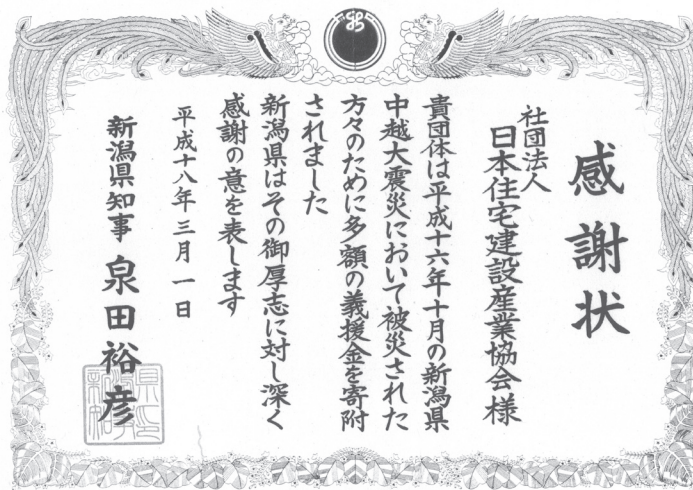 感謝状
社団法人
日本住宅建設産業協会様
貴団体は平成十六年十月の新潟県
中越大震災において被災された
方々のために多額の義援金を寄附
されました
新潟県はその御厚志に対し深く
感謝の意を表します
平成十八年三月一日
新潟県知事 泉田裕彦